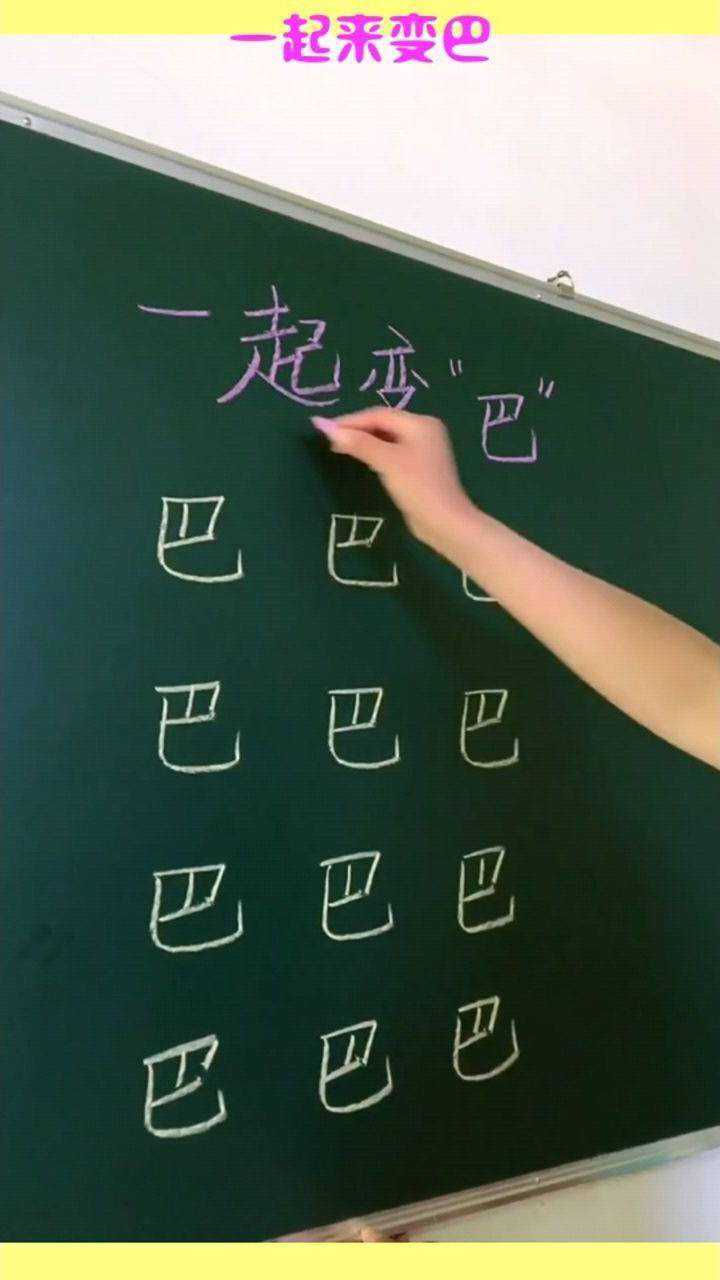 一起来变巴
一起变“巴”
巴 巴 巴
巴 巴 巴
巴 巴 巴
巴 巴 巴